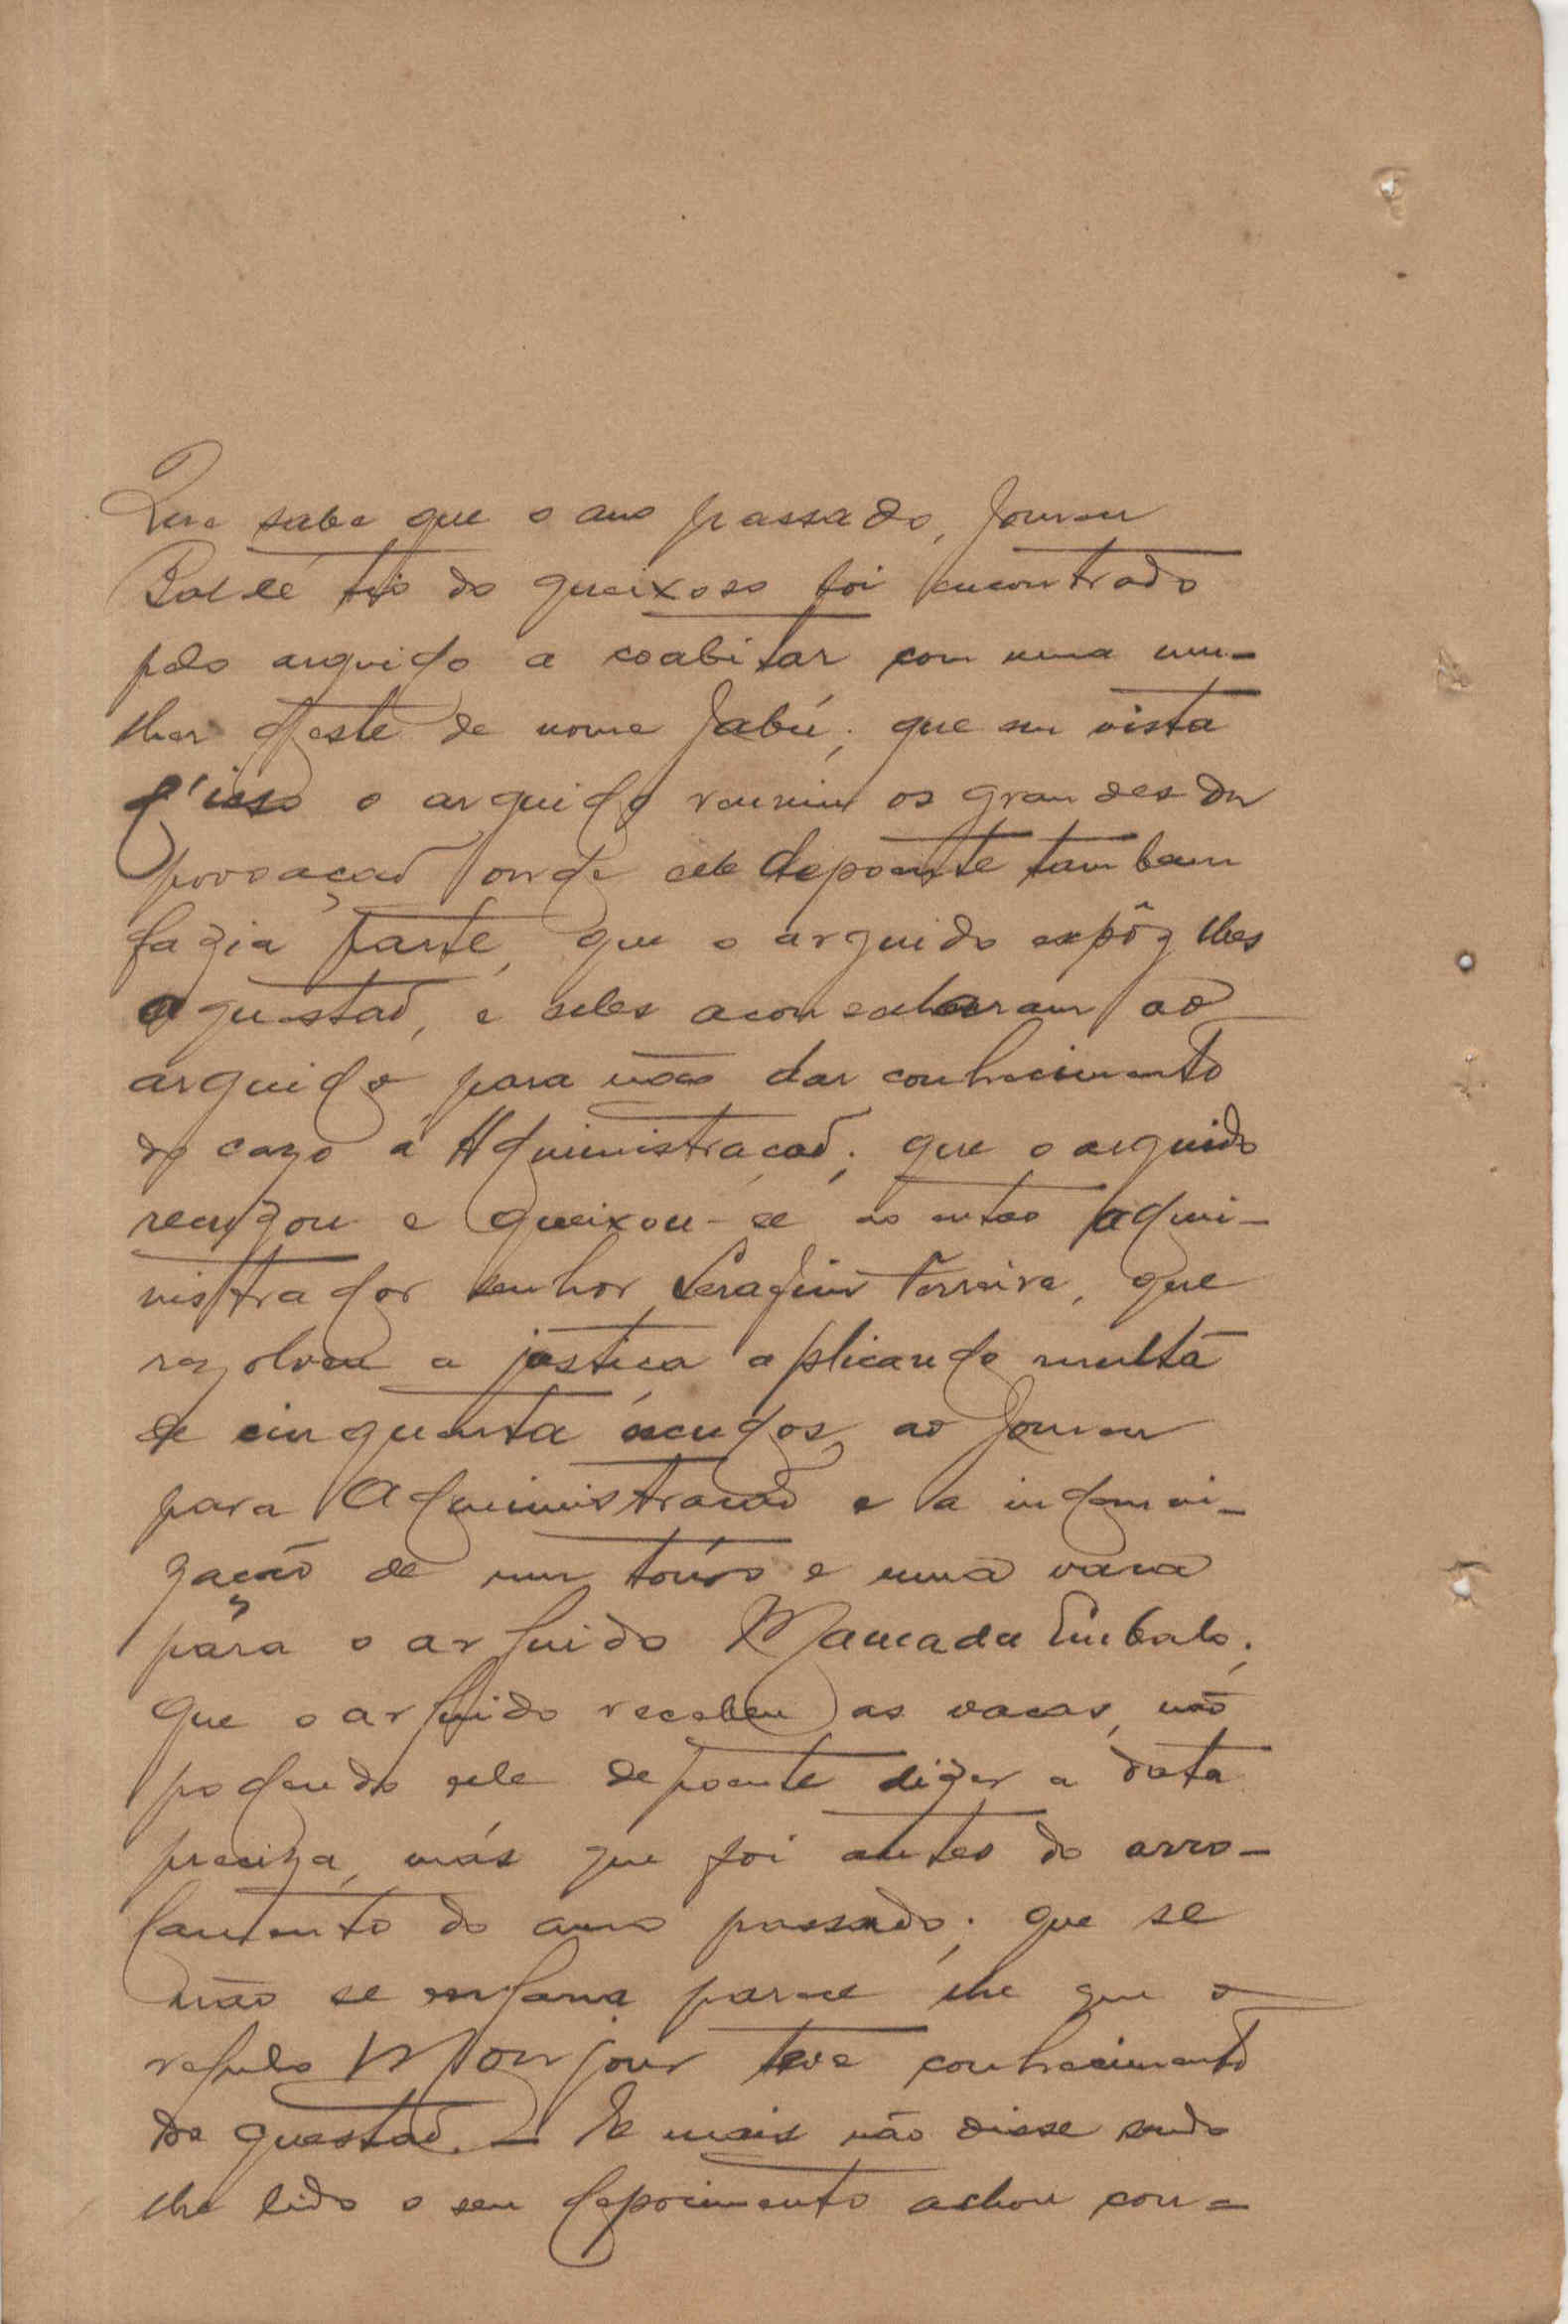 Que sabe que o ano passado, Jouron
Baldé tio do queixoso foi encontrado
pelo arguido a coabitar com uma mu-
lher deste de nome Jabú; que em vista
d'isso o arguido reuniu os grandes da
povoaçaõ onde ele depoente tambem
fazia parte, que o arguido expôz lhes
a questaõ, e eles aconselharam ao
arguido para não dar conhecimento
do cazo á Administraçaõ; que o arguido
recuzou e queixou-se ao entao admi-
nistrador senhor Serafim Ferreira, que
rezolveu a justiça aplicando multa
de cinquenta escudos ao Jouron
para Administração e a indemni-
zação de um touro e uma vaca
para o arguido Mamadu Embalo;
que o arguido recebeu as vacas, não
podendo ele depoente dizer a data
preciza, más que foi antes do arro-
lamento do ano passado; que se
não se engana parece lhe que o
regulo Monjour teve conhecimento
da questaõ. — E mais não disse sendo
lhe lido o seu depoimento achou con=